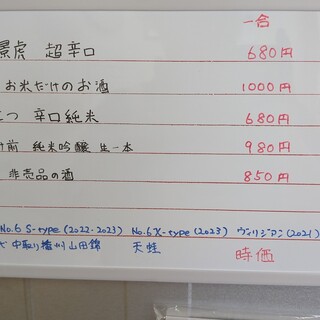 一合
景虎 超辛口 680円
お米だけのお酒 1000円
つ 辛口純米 680円
前 純米吟醸 生一本 980円
非売品の酒 850円
No.6 S-type (2022-2023) No.6 X-type (2023) ヴィリジアン (2021)
中取り播州山田錦 天蛙 時価